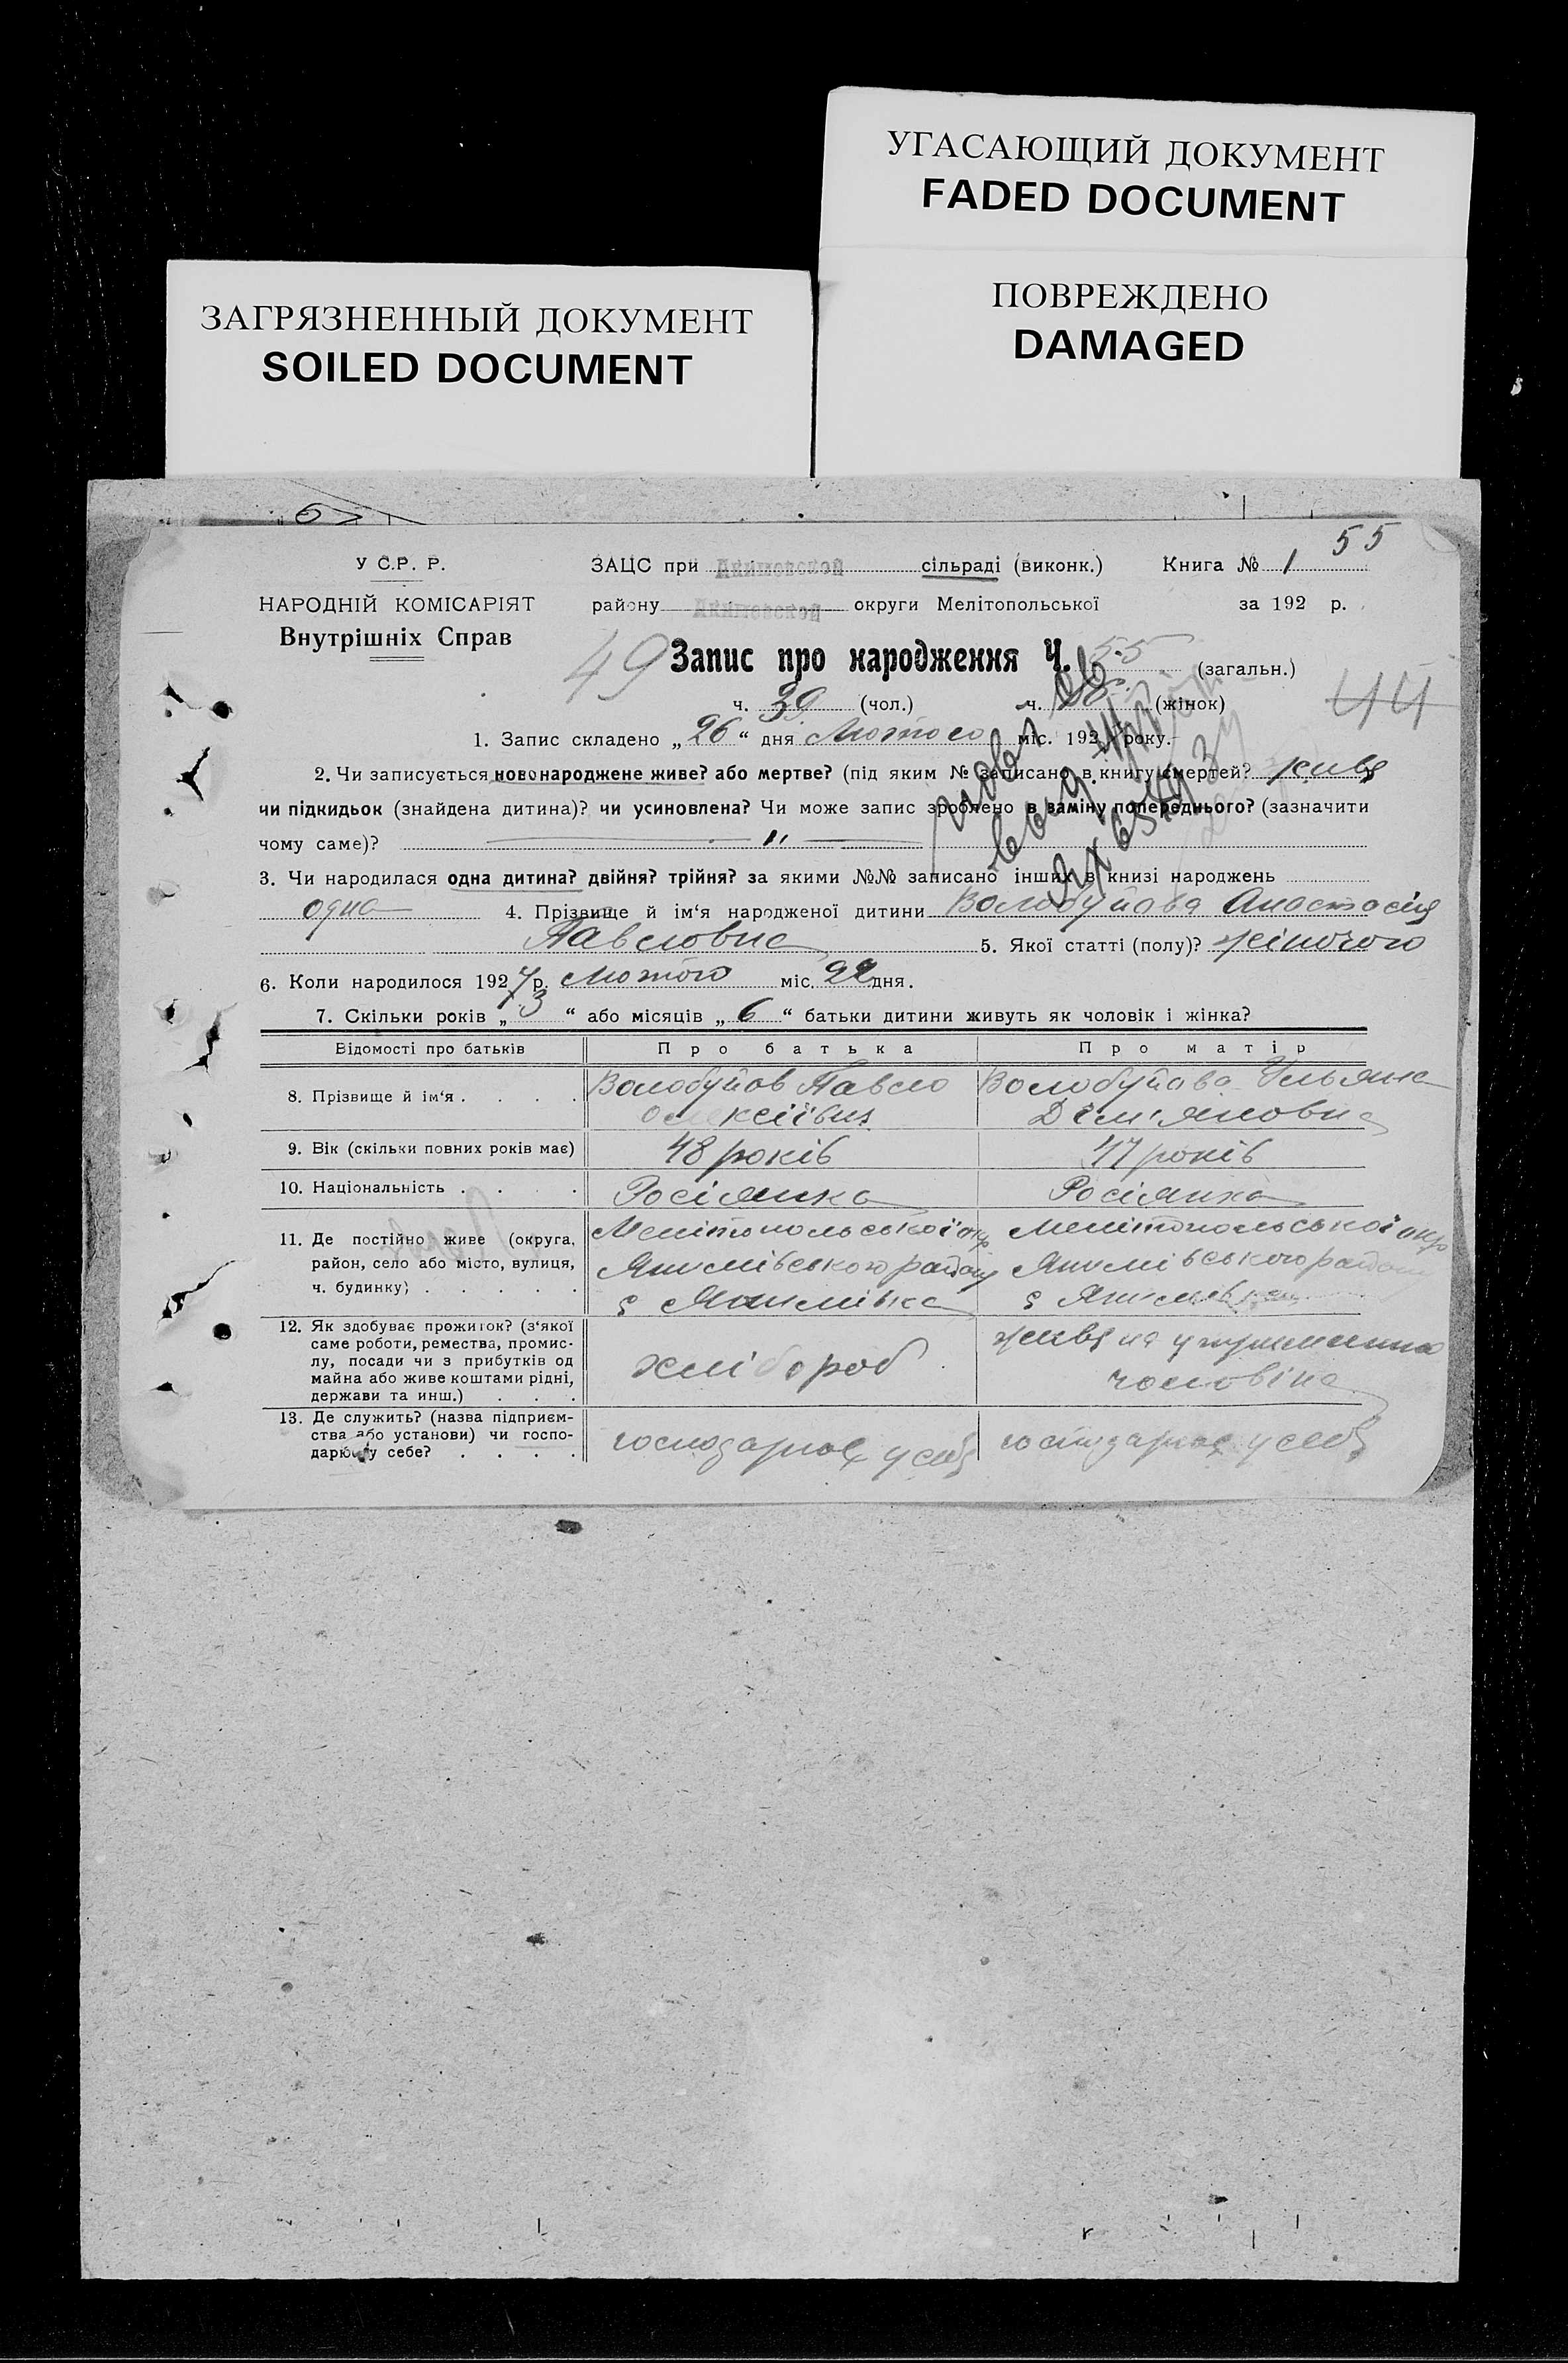 УГАСАЮЩИЙ ДОКУМЕНТ
FADED DOCUMENT
ПОВРЕЖДЕНО
DAMAGED
ЗАГРЯЗНЕННЫЙ ДОКУМЕНТ
SOILED DOCUMENT
55
У С.Р. Р.
НАРОДНІЙ КОМІСАРІЯТ
Внутрішніх Справ
ЗАЦС при Акимовской сільраді (виконк.) Книга № 1
району Акимовской округи Мелітопольської за 192 р.
49 Запис про народження Ч. 55 (загальн.)
ч. 39 (чол.) ч. (жінок) 44
1. Запис складено „26“ дня Лютого міс. 192 року.
2. Чи записується новонароджене живе? або мертве? (під яким № записано в книгу смертей? живе
чи підкидьок (знайдена дитина)? чи усиновлена? Чи може запис зроблено в заміну попереднього? (зазначити
чому саме)? "
3. Чи народилася одна дитина? двійня? трійня? за якими №№ записано інших в книзі народжень
одна 4. Прізвище й ім‘я народженої дитини Волобуйова Анастасія
Павловна 5. Якої статті (полу)? жіночого
6. Коли народилося 1927 р. Лютого міс. 22 дня.
7. Скільки років „3“ або місяців „6“ батьки дитини живуть як чоловік і жінка?
Відомості про батьків Про батька Про матір
8. Прізвище й ім‘я . . . . Волобуйов Павло Волобуйова Ульяна
Олексіївич Дем'яновна
9. Вік (скільки повних років має) 48 років 47 років
10. Національність . . . . Росіянка Росіянка
11. Де постійно живе (округа, Мелітопольської окр Мелітопольської окр
район, село або місто, вулиця, Якимівського району Якимівського району
ч. будинку) . . . . . с Якимівка с Якимівка
12. Як здобуває прожиток? (з‘якої
саме роботи, ремества, промис-
лу, посади чи з прибутків од
майна або живе коштами рідні,
держави та инш.) . . .
хлібороб
живе на утриманні
чоловіка
13. Де служить? (назва підприєм-
ства або установи) чи госпо-
дарює у себе? . . . .
господарює у себе господарює у себе